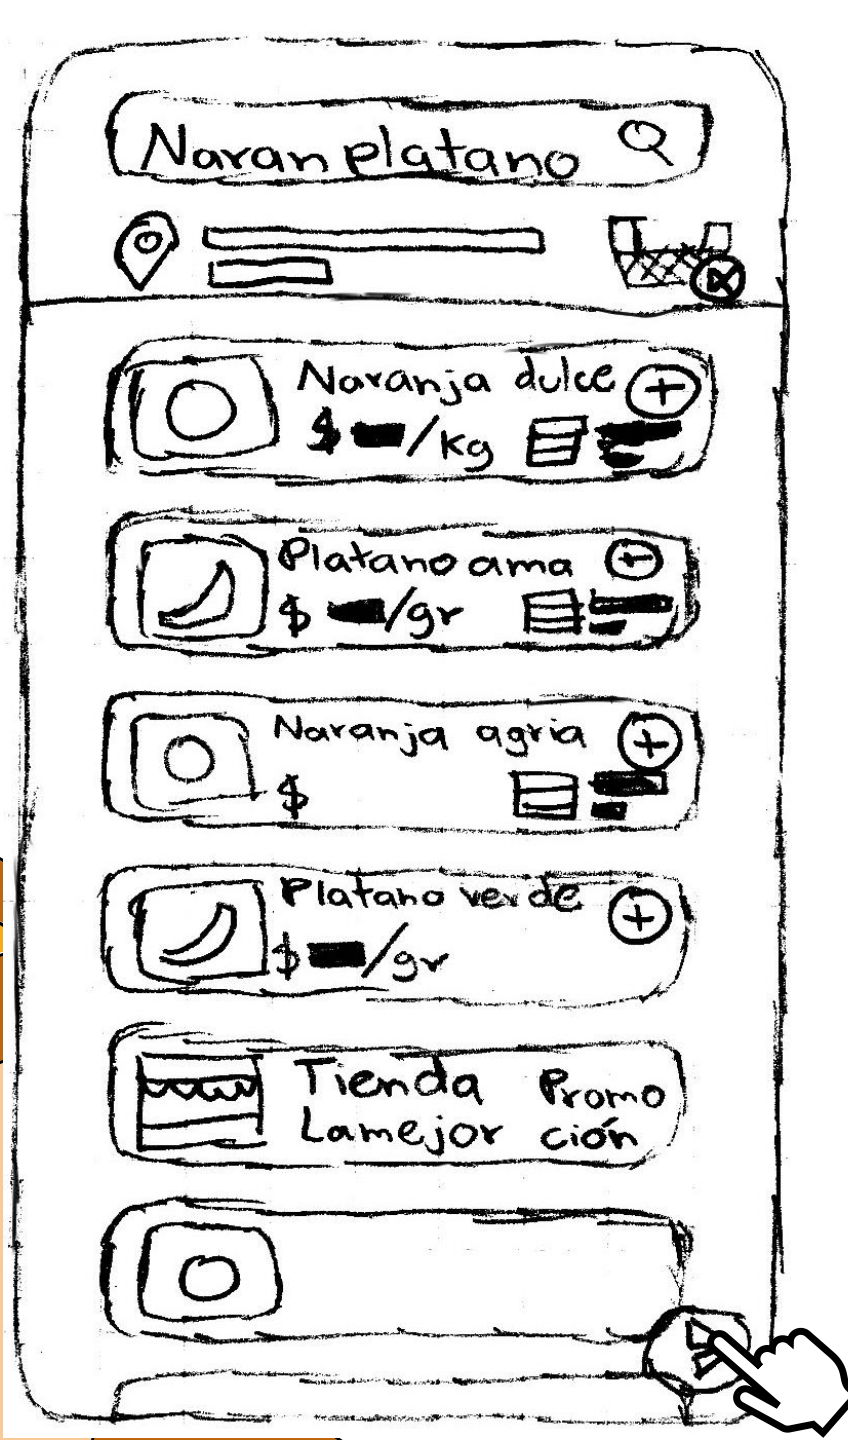 Naranplatano
Naranja dulce +
$ /kg
Platano ama -
$ /gr
Naranja agria +
$
Platano verde +
$ /gr
Tienda Promo
Lamejor ción